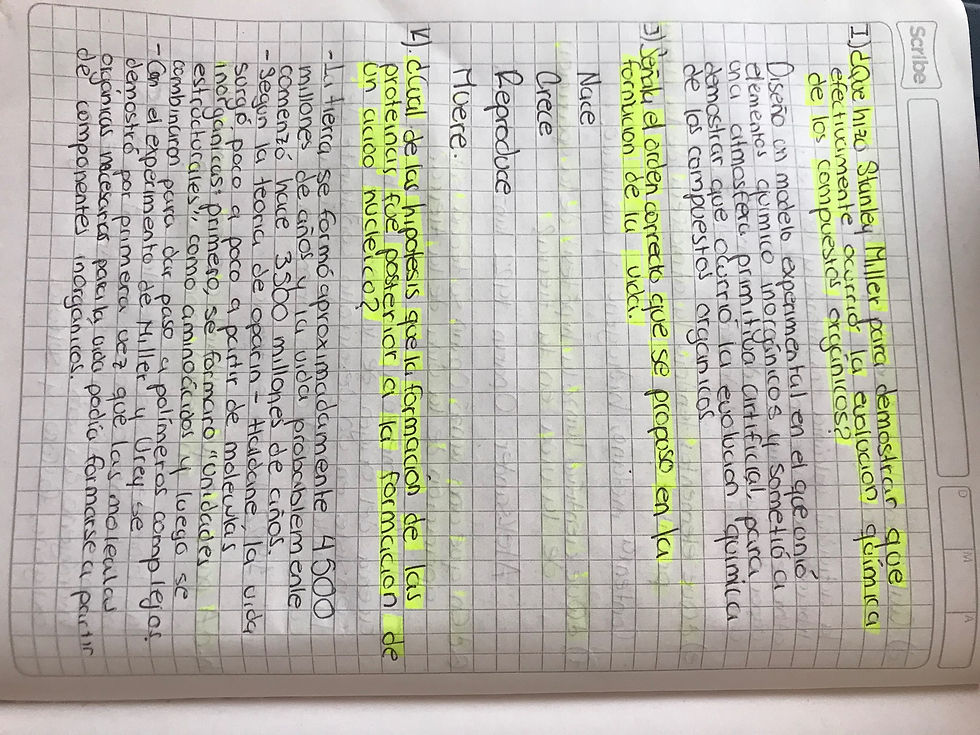 Scribe
D M A
I) ¿Que hizo Stanley Miller para demostrar que
efectivamente ocurrios la evolucion química
de los compuestos organicos?
Diseño un modelo experimental en el que unió
elementos químico inorgánicos y sometió a
una atmosfera primitiva artificial, para
demostrar que ocurrio la evolucion quimica
de los compuestos organicos
J) Señala el orden correcto que se propuso en la
formacion de la vida.
Nace
Crece
Reproduce
Muere.
K). ¿Cual de las hipotesis que la formación de las
proteinas fue posterior a la formacion de
un acido nucleico?
- La tierra se formó aproximadamente 4500
millones de años y la vida probablemente
comenzó hace 3500 millones de años.
- Segun la teoría de oparin - Haldane, la vida
surgó poco a poco a partir de moleculas
inorganicas: primero, se formaro "unidades
estructurales", como aminoácidos y luego se
combinaron para dar paso a polímeros complejos.
- Con el experimento de Miller y Urey se
demostró por primera vez que las moleculas
orgánicas necesarias para la vida podía formarse a partir
de componentes inorganicos.